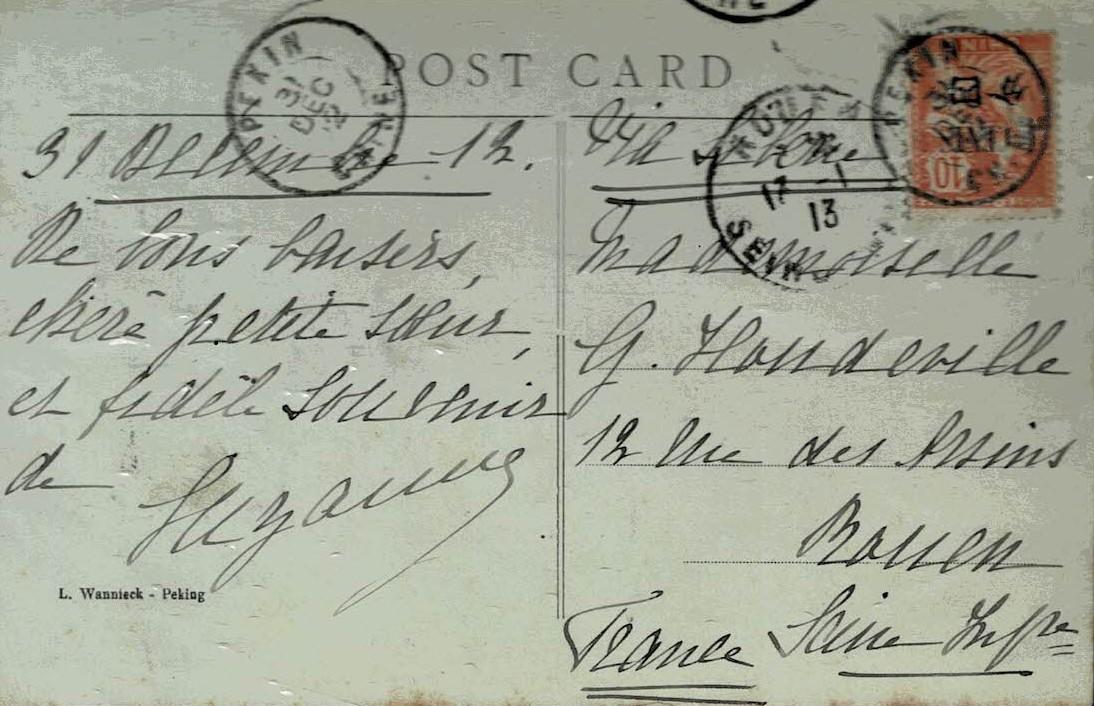 POST CARD
PEKIN
31
DEC
12
CHINE
31 Decembre 12.
De bons baisers,
chère petite sœur,
et fidèle souvenir
de Suzanne
L. Wannieck - Peking
Via Sibérie
ROUEN
17 -1
13
SEINE
PEKIN
CHINE
10
Mademoiselle
G. Houdeville
12 rue des Arsins
Rouen
Seine Infre
France